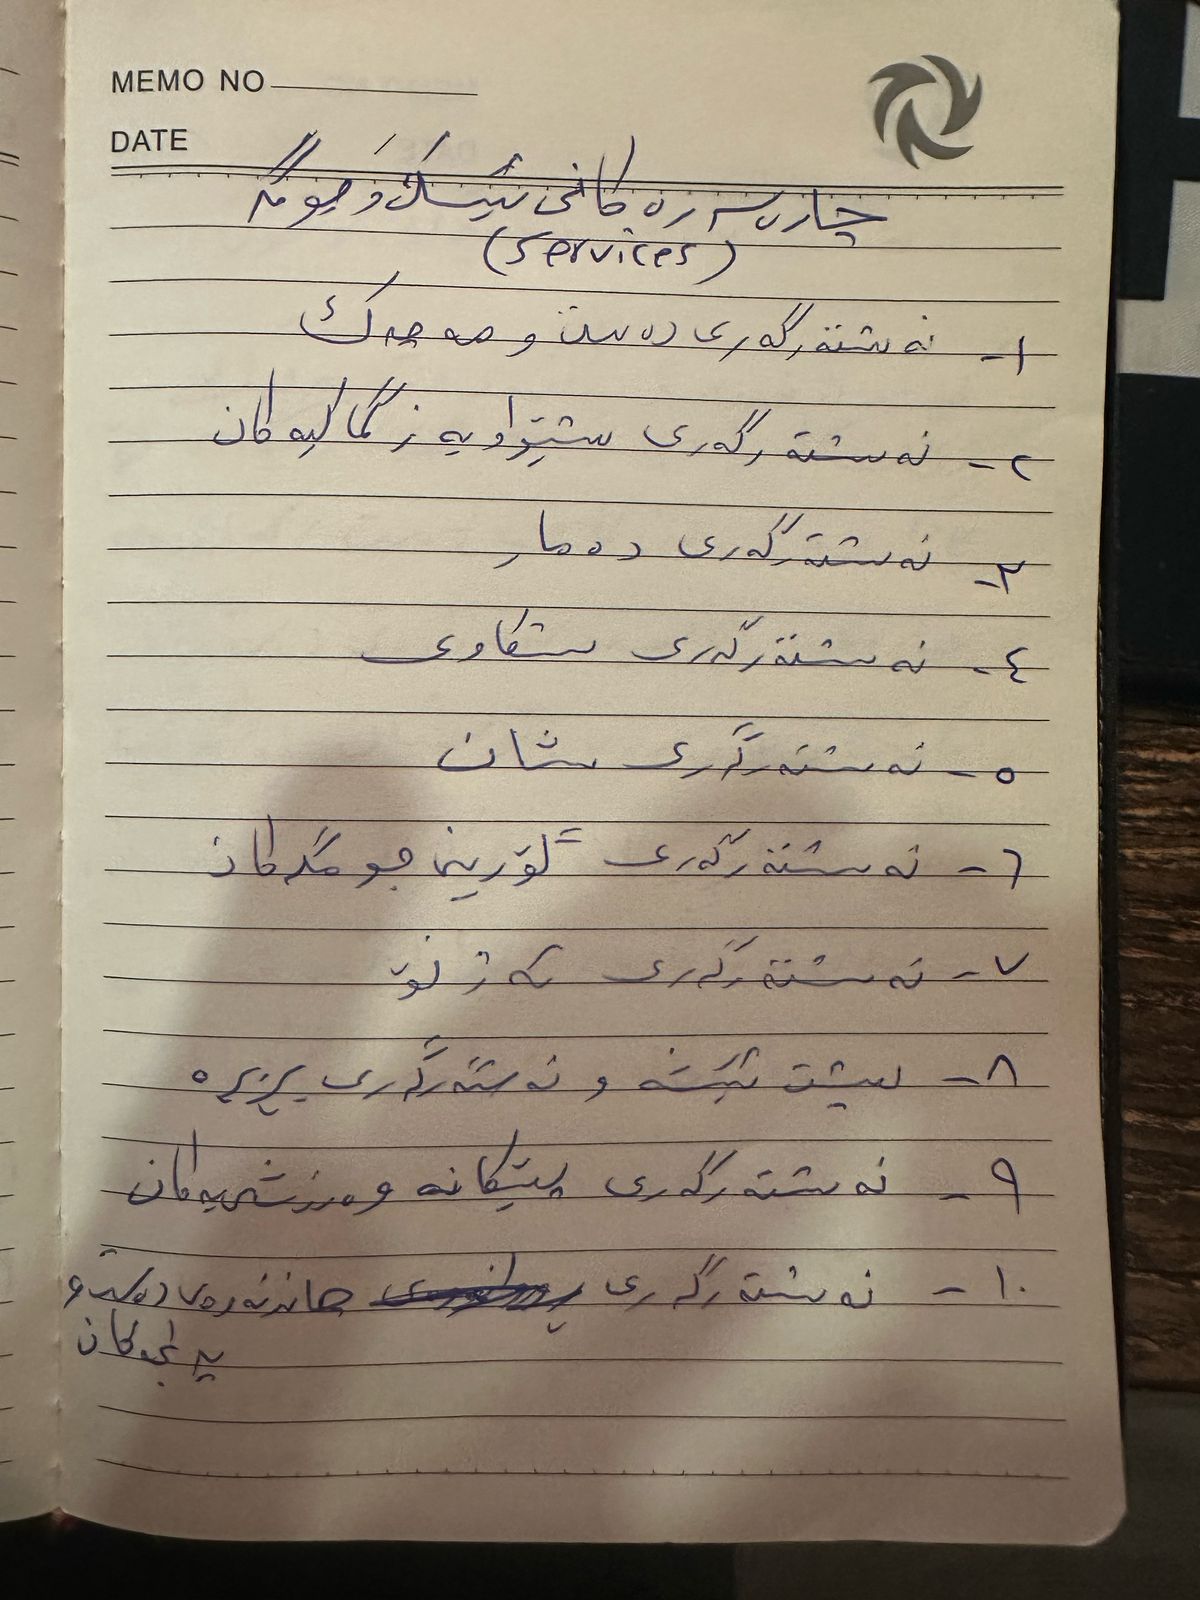 MEMO NO
DATE
چارەسەرەکانی ئێسک و جومگە
(services)
١- نەشتەرگەری دەست و مەچەک
٢- نەشتەرگەری شێواویە زگماکیەکان
٣- نەشتەرگەری دەمار
٤- نەشتەرگەری شکاوی
٥- نەشتەرگەری شان
٦- نەشتەرگەری گۆڕینی جومگەکان
٧- نەشتەرگەری ئەژنۆ
٨- پشت ئێشە و نەشتەرگەری بڕبڕە
٩- نەشتەرگەری پێکانە وەرزشیەکان
١٠- نەشتەرگەری چاندنەوەی دەست و
پەنجەکان